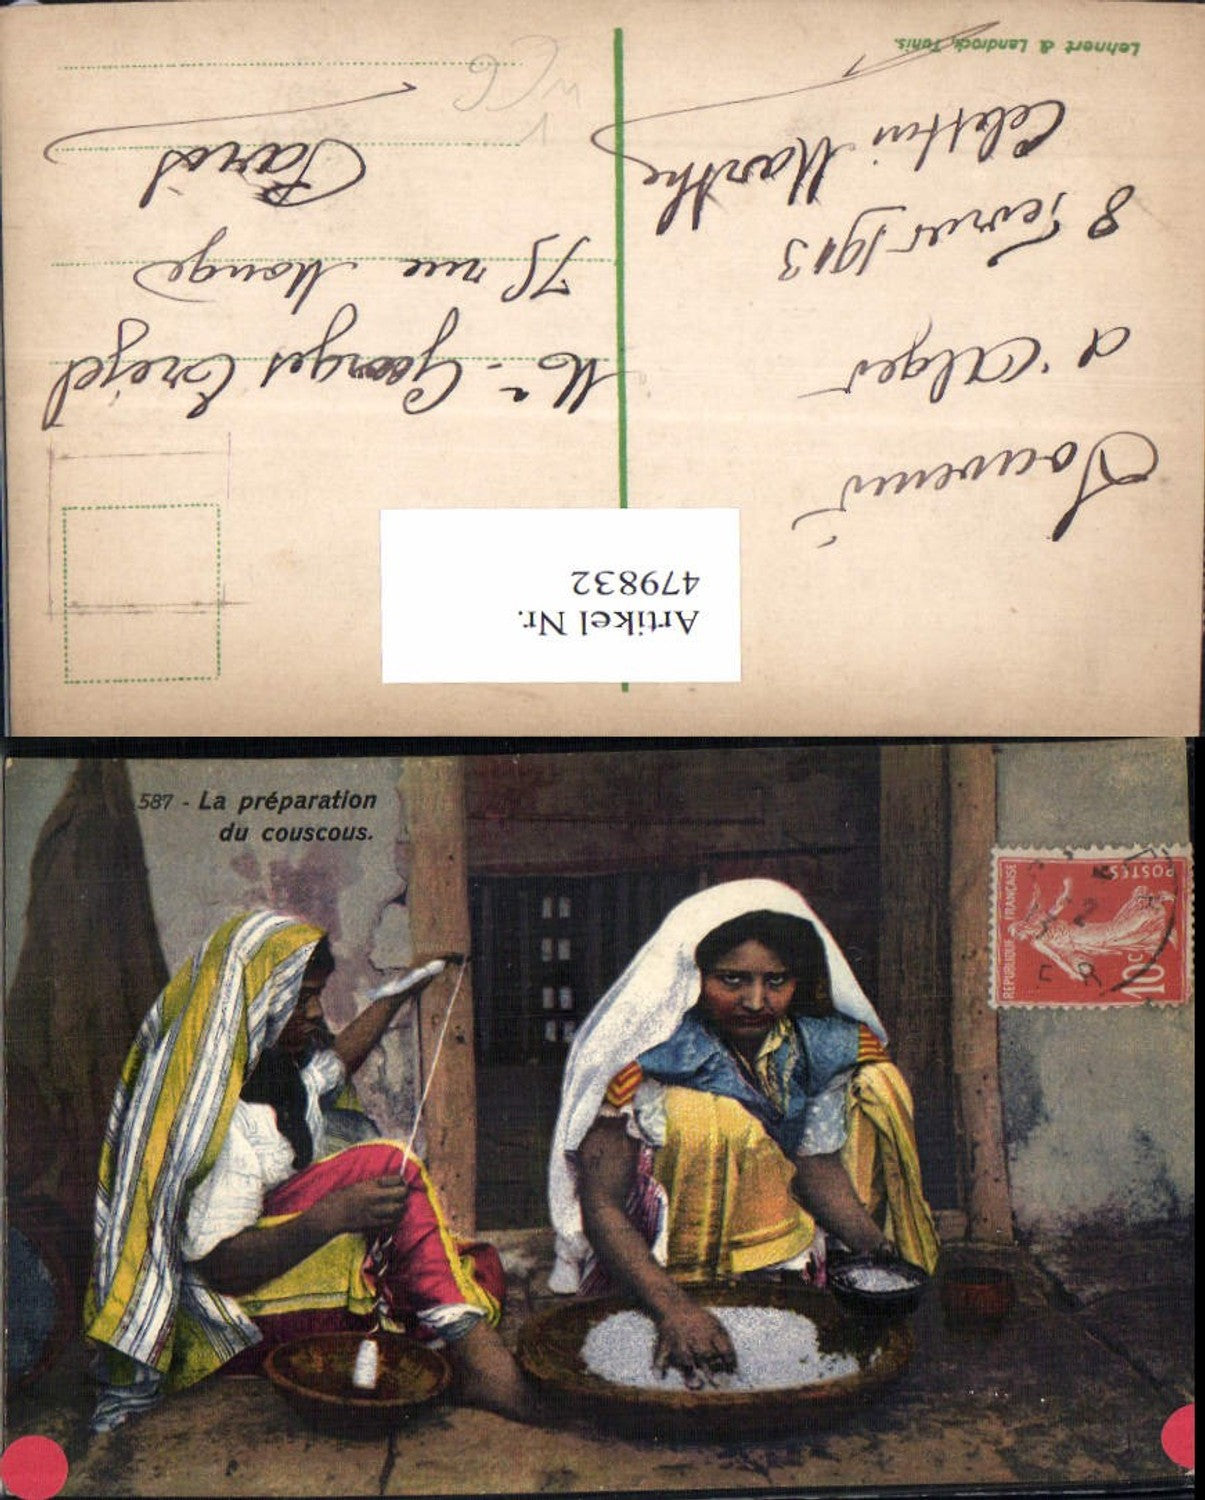 Lehnert & Landrock, Tunis.
Souvenir
d'Alger
8 Fevrier 1913
Celestin Marthe
Georges
75 rue Monge
Paris
Artikel Nr.
479832
587 - La préparation
du couscous.
REPUBLIQUE FRANÇAISE
POSTES
10c